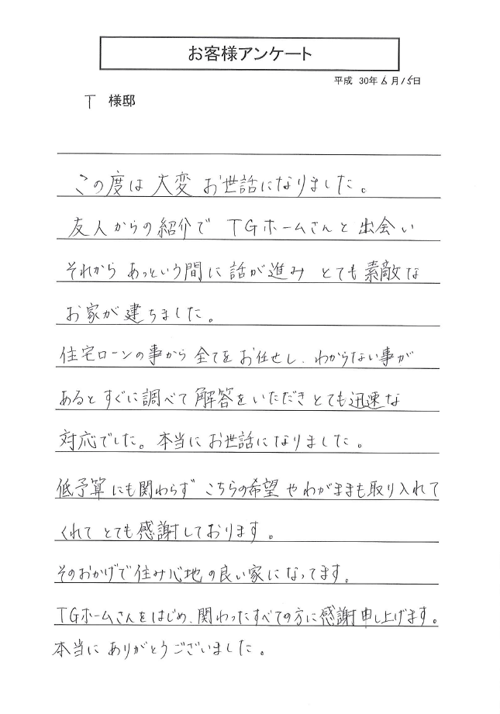 お客様アンケート
平成 30年6月15日
T 様邸
この度は 大変 お世話になりました。
友人からの紹介で TGホームさんと 出会い
それから あっという間に 話が進み とても 素敵な
お家が 建ちました。
住宅ローンの事から 全てを お任せし、わからない事が
あると すぐに 調べて 解答を いただき とても 迅速な
対応でした。本当に お世話になりました。
低予算にも関わらず こちらの希望 や わがままも 取り入れて
くれて とても 感謝しております。
そのおかげで 住み心地の良い家に なってます。
TGホームさんをはじめ、関わったすべての方に 感謝申し上げます。
本当に ありがとうございました。